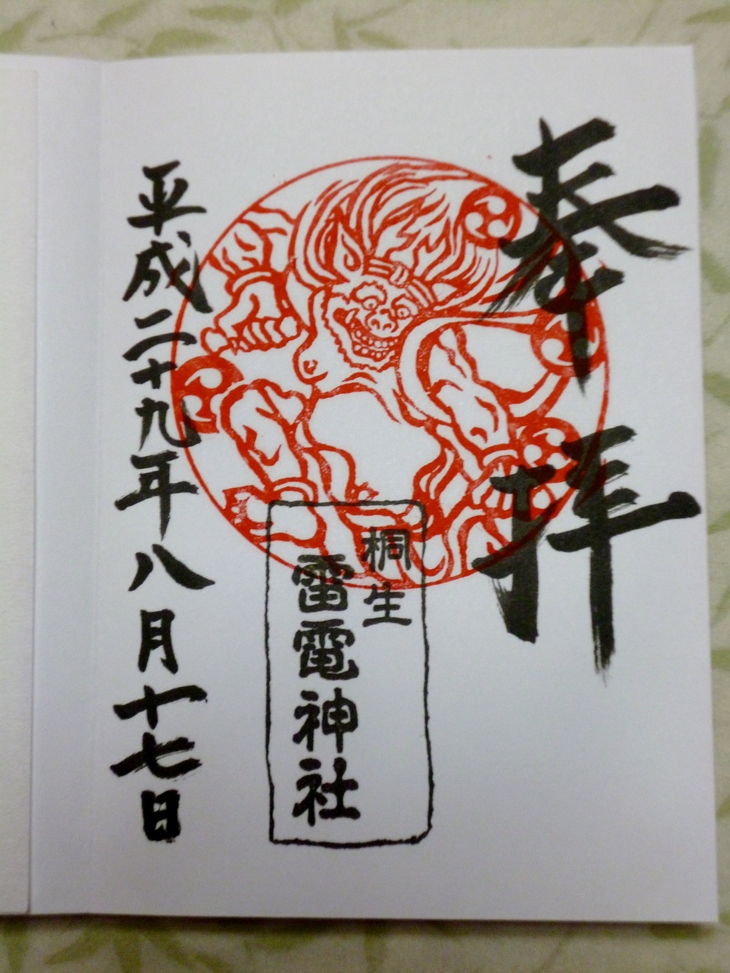 奉拝
桐生
雷電神社
平成二十九年八月十七日